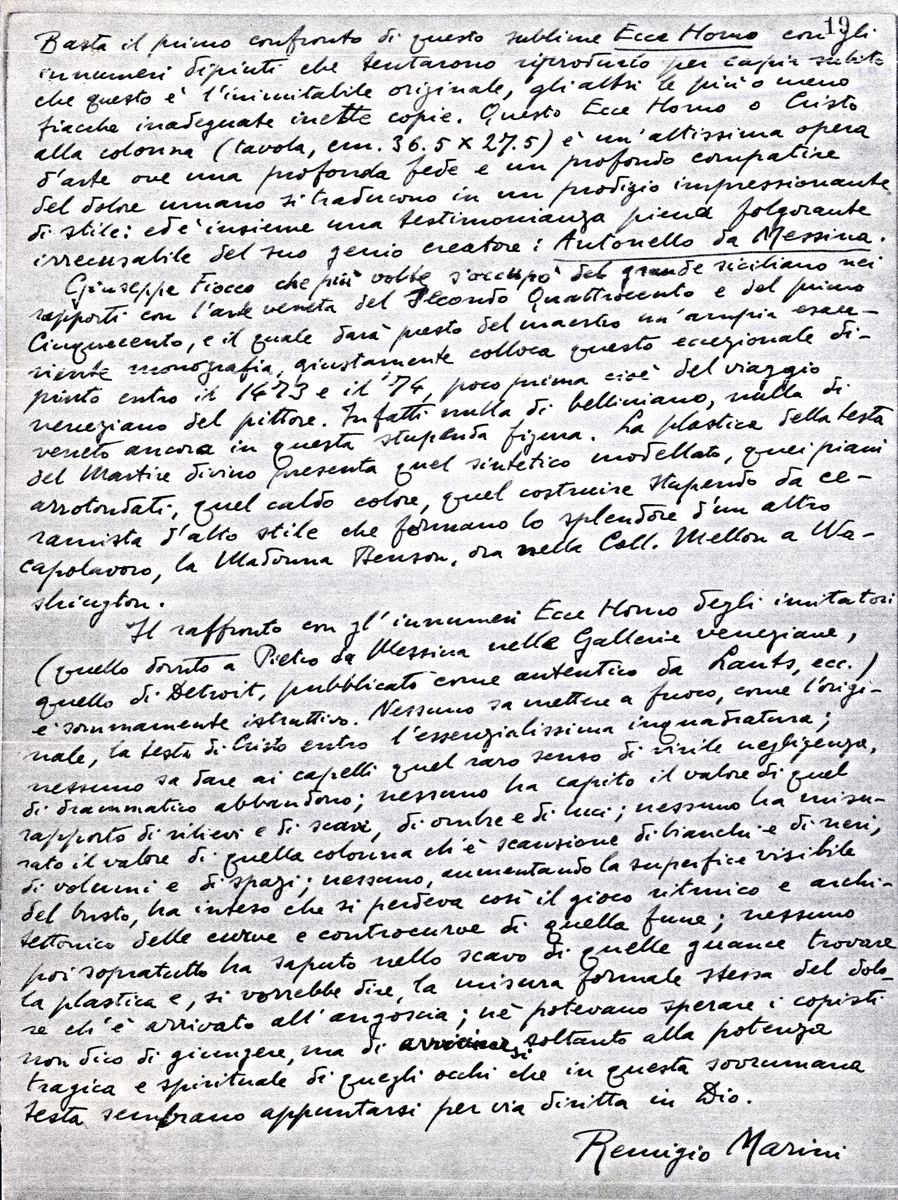 19
Basta il primo confronto di questo sublime Ecce Homo con gli
innumeri dipinti che tentarono riprodurlo per capir subito
che questo è l'inimitabile originale, gli altri le più o meno
fiacche inadeguate inette copie. Questo Ecce Homo o Cristo
alla colonna (tavola, cm. 36.5 x 27.5) è un'altissima opera
d'arte ove una profonda fede e un profondo compatire
del dolore umano si traducono in un prodigio impressionante
di stile: ed è insieme una testimonianza piena folgorante
irrecusabile del suo genio creatore: Antonello da Messina.
Giuseppe Fiocco che più volte s'occupò del grande siciliano nei
rapporti con l'arte veneta del Secondo Quattrocento e del primo
Cinquecento, e il quale darà presto del maestro un'ampia esau-
riente monografia, giustamente colloca questo eccezionale di-
pinto entro il 1473 e il '74, poco prima cioè del viaggio
veneziano del pittore. Infatti nulla di belliniano, nulla di
veneto ancora in questa stupenda figura. La plastica della testa
del Martire divino presenta quel sintetico modellato, quei piani
arrotondati, quel caldo colore, quel costruire stupendo da ce-
ramista d'alto stile che formano lo splendore d'un altro
capolavoro, la Madonna Benson, ora nella Coll. Mellon a Wa-
shington.
Il raffronto con gl'innumeri Ecce Homo degli imitatori
(quello dovuto a Pietro da Messina nelle Gallerie veneziane,
quello di Detroit, pubblicato come autentico da Lauts, ecc.)
è sommamente istruttivo. Nessuno sa mettere a fuoco, come l'origi-
nale, la testa di Cristo entro l'essenzialissima inquadratura;
nessuno sa dare ai capelli quel raro senso di virile negligenza,
di drammatico abbandono; nessuno ha capito il valore di quel
rapporto di rilievi e di scavi, di ombre e di luci; nessuno ha misu-
rato il valore di quella colonna ch'è scansione di bianchi e di neri,
di volumi e di spazi; nessuno, aumentando la superfice visibile
del busto, ha inteso che si perdeva così il gioco ritmico e archi-
tettonico delle curve e controcurve di quella fune; nessuno
poi sopratutto ha saputo nello scavo di quelle guance trovare
la plastica e, si vorrebbe dire, la misura formale stessa del dolo-
re ch'è arrivato all'angoscia; nè potevano sperare i copisti
non dico di giungere, ma di avvicinarsi soltanto alla potenza
tragica e spirituale di quegli occhi che in questa sovrumana
testa sembrano appuntarsi per via diritta in Dio.
Remigio Marini